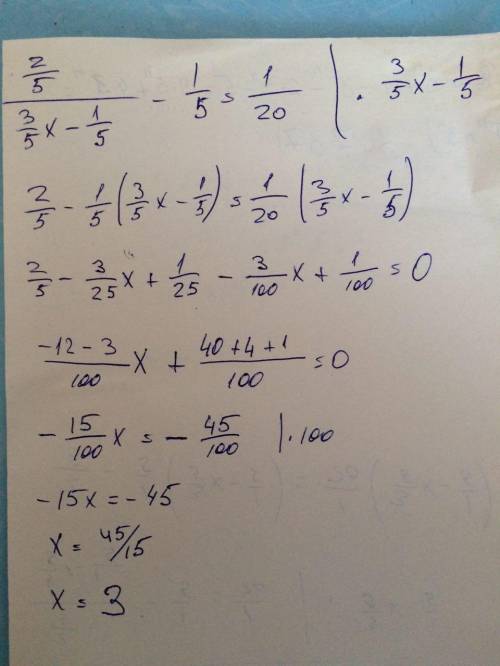 (2/5)/(3/5x - 1/5) - 1/5 = 1/20 | · 3/5x - 1/5
2/5 - 1/5(3/5x - 1/5) = 1/20(3/5x - 1/5)
2/5 - 3/25x + 1/25 - 3/100x + 1/100 = 0
(-12-3)/100x + (40+4+1)/100 = 0
- 15/100x = - 45/100 | · 100
-15x = -45
x = 45/15
x = 3